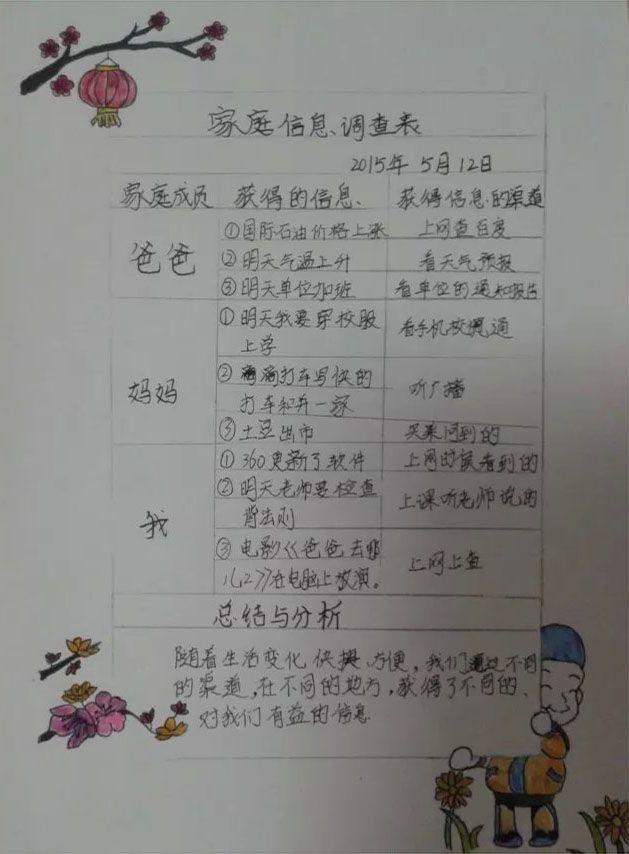 家庭信息调查表
2015年5月12日
家庭成员 获得的信息 获得信息的渠道
爸爸
①国际石油价格上涨 上网查百度
②明天气温上升 看天气预报
③明天单位加班 看单位的通知报告
妈妈
①明天我要穿校服
上学
看手机校讯通
②滴滴打车与快的
打车和并一家
听广播
③土豆出市 买菜问到的
我
①360更新了软件 上网时候看到的
②明天老师要检查
背法则
上课听老师说的
③电影《爸爸去哪
儿2》在电脑上放演。
上网上查
总结与分析
随着生活变化快捷、方便，我们通过不同
的渠道，在不同的地方，获得了不同的、
对我们有益的信息